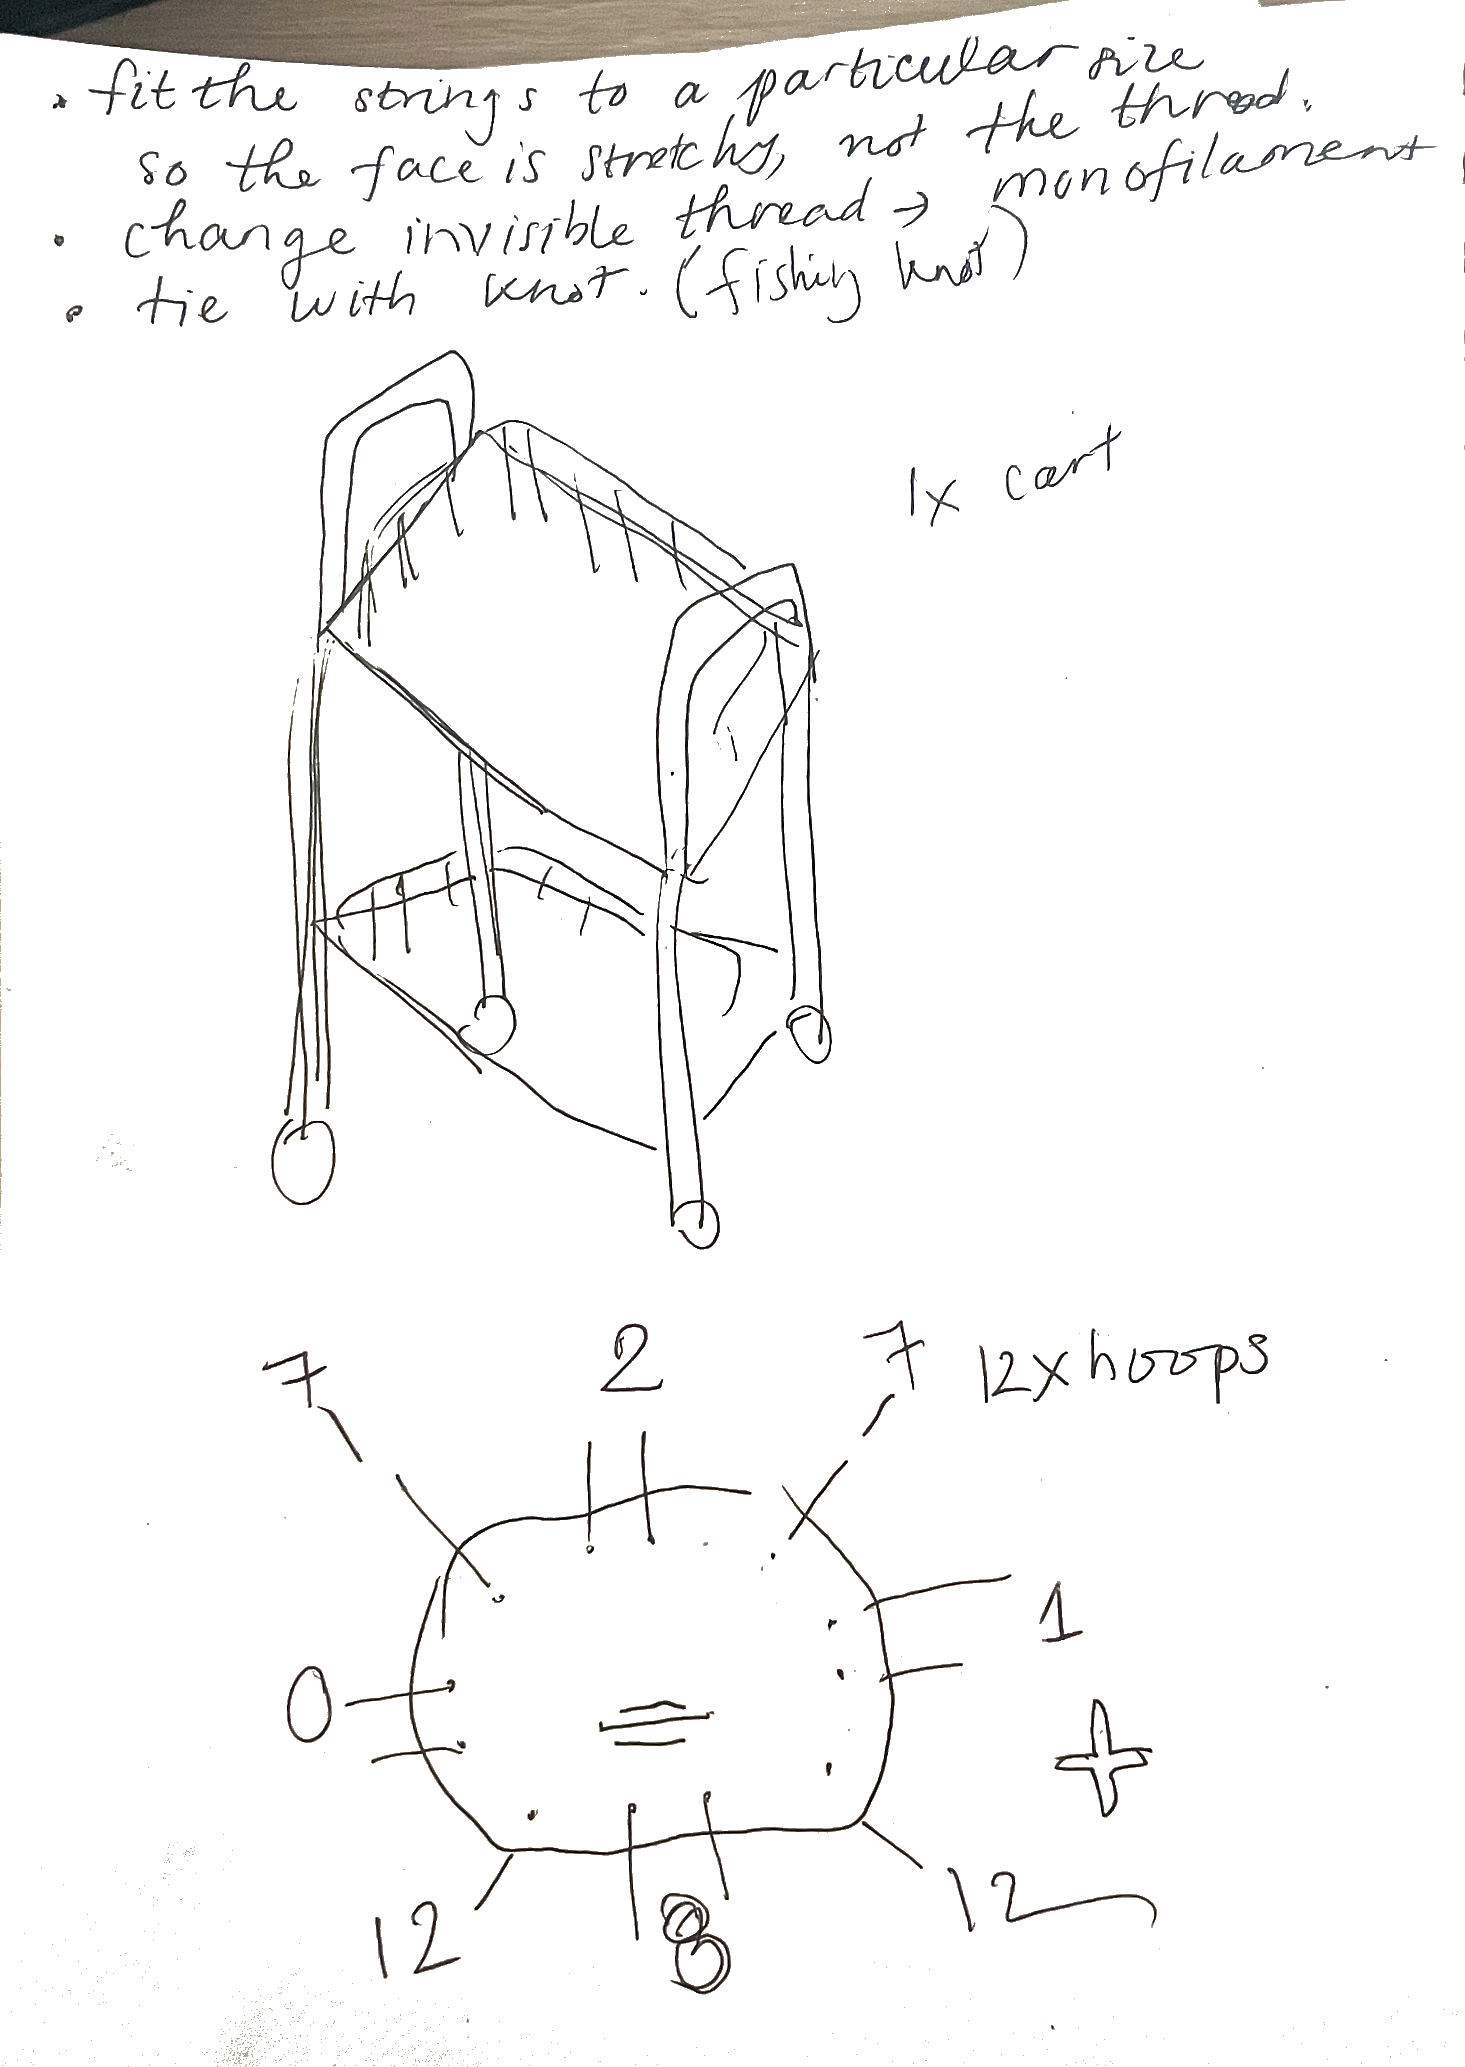 • fit the strings to a particular size
so the face is stretchy, not the thread.
• change invisible thread → monofilament
• tie with knot. (fishing knot)
1x cart
7 2 7 12x hoops
1
0
+
12 8 12